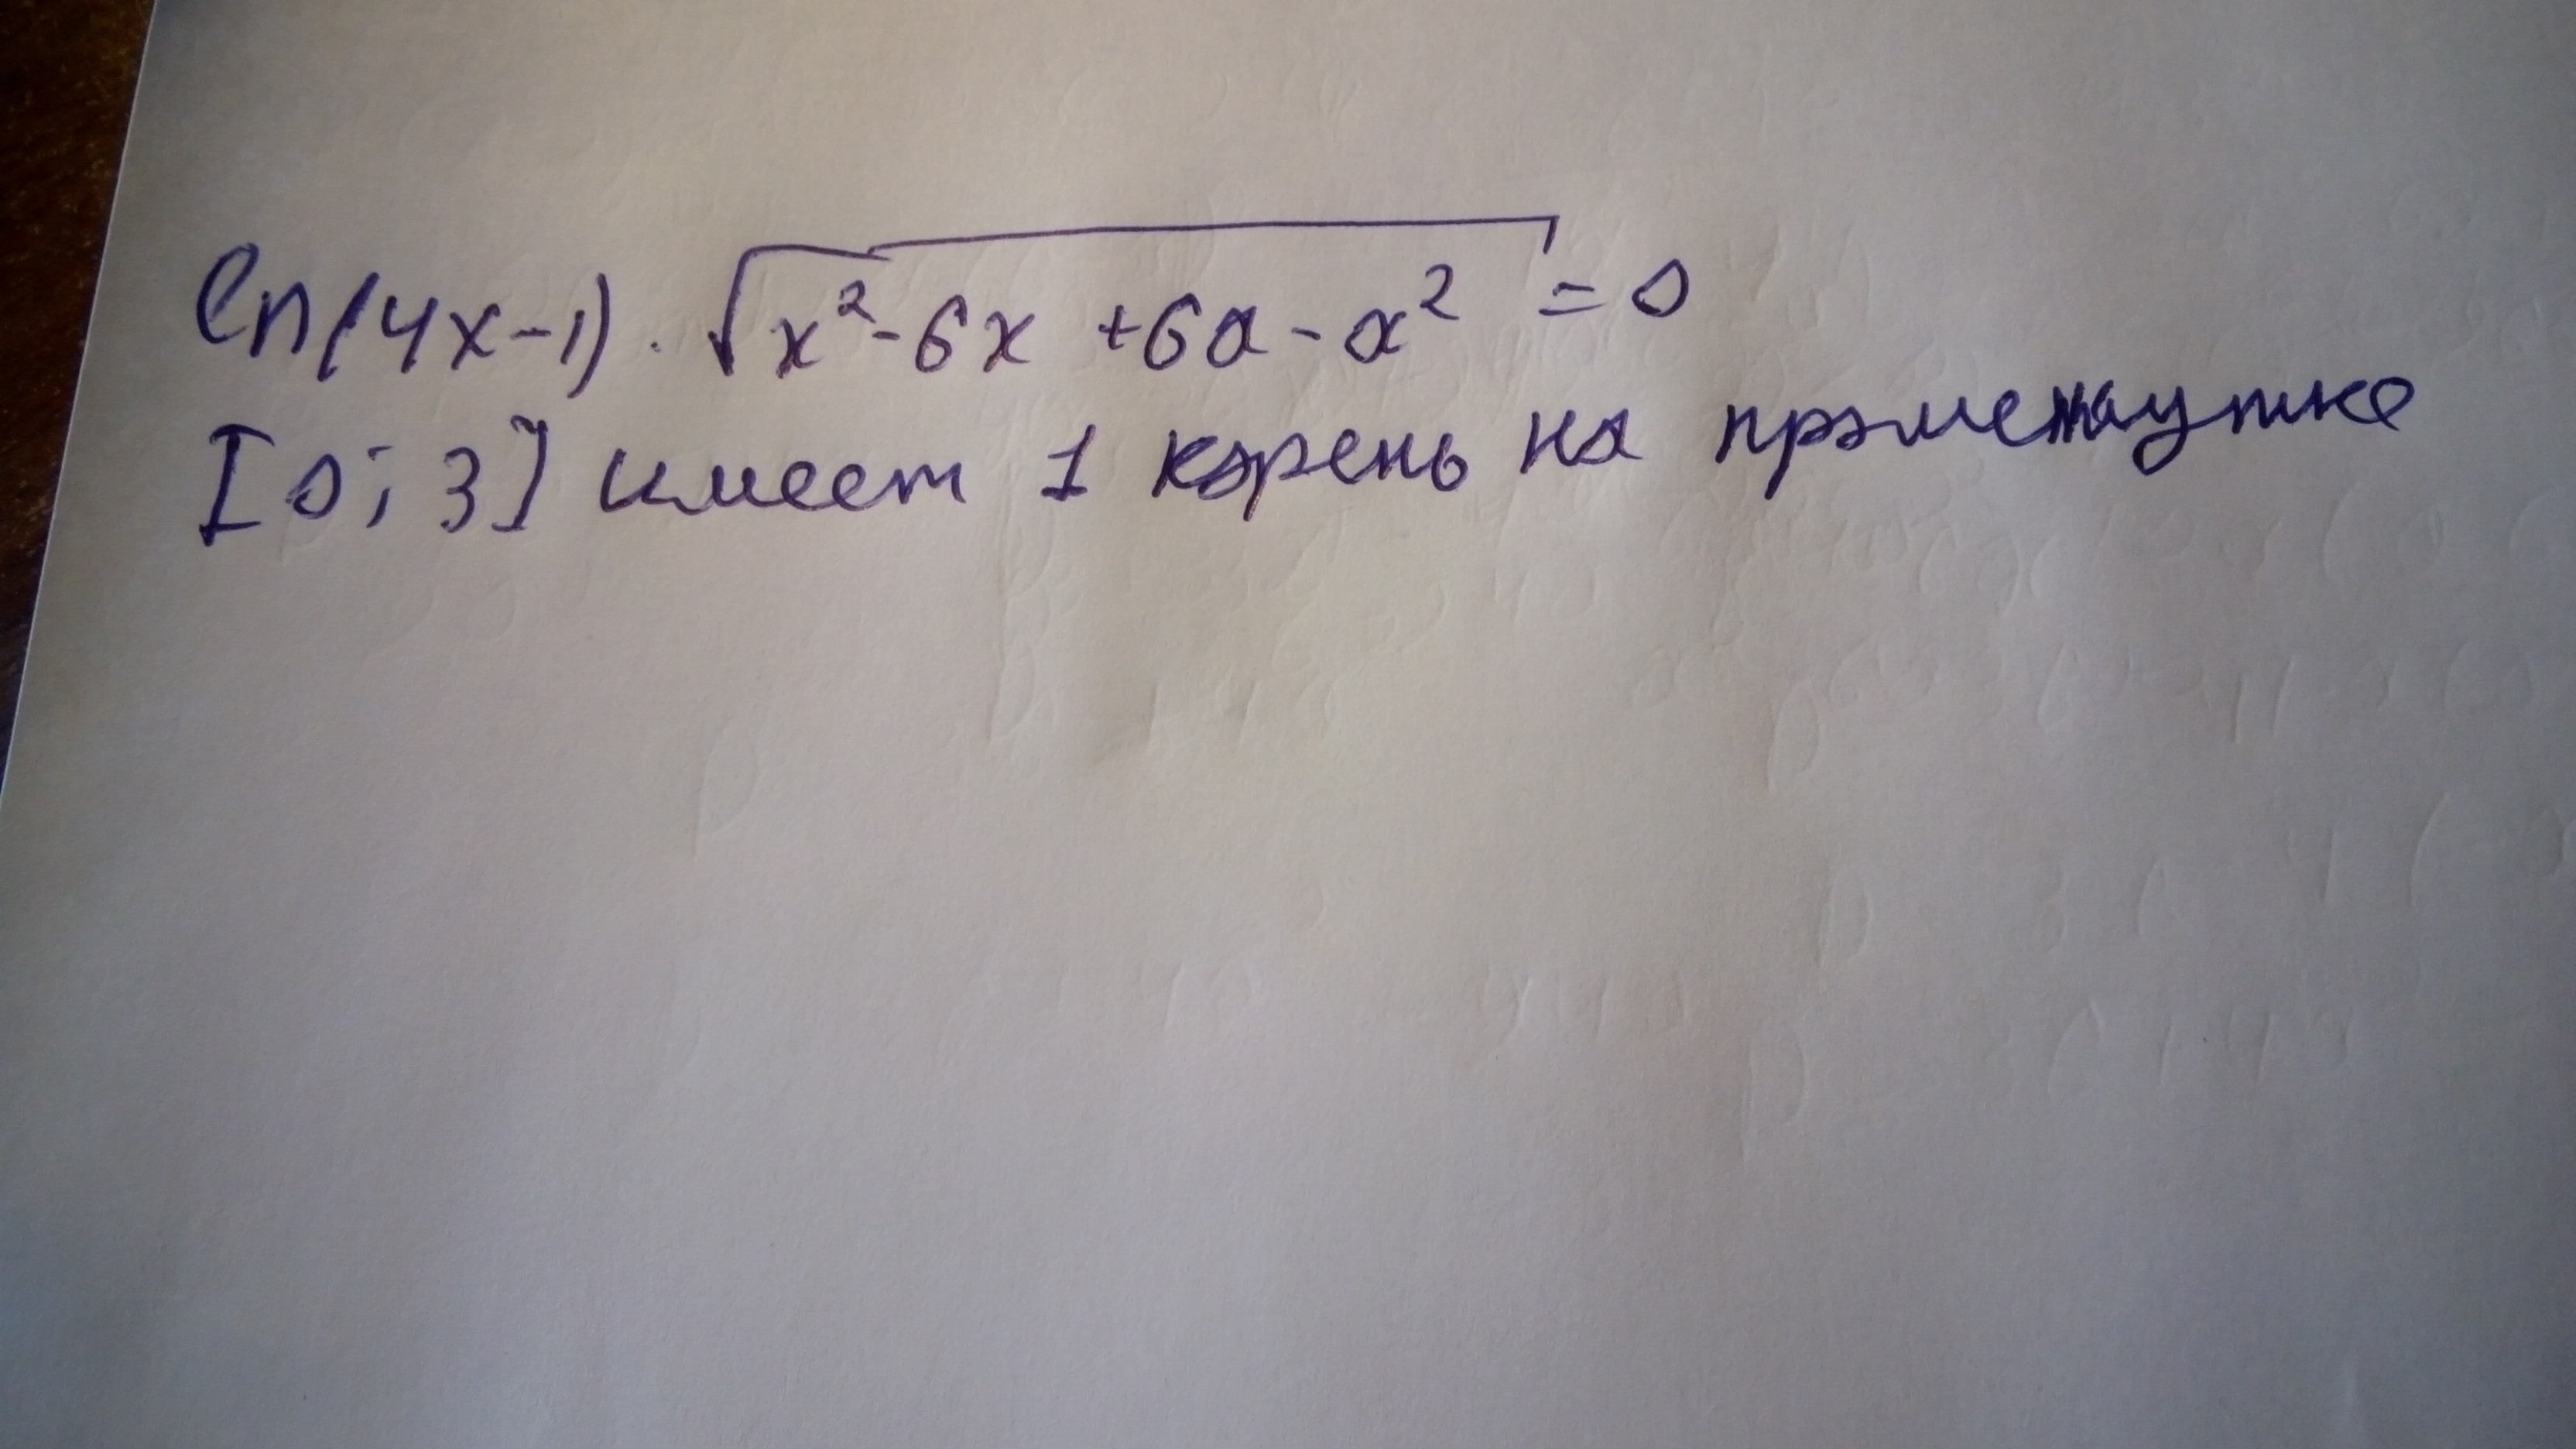 ln(4x-1) · √(x²-6x+6a-a²) = 0
[0; 3] имеет 1 корень на промежутке